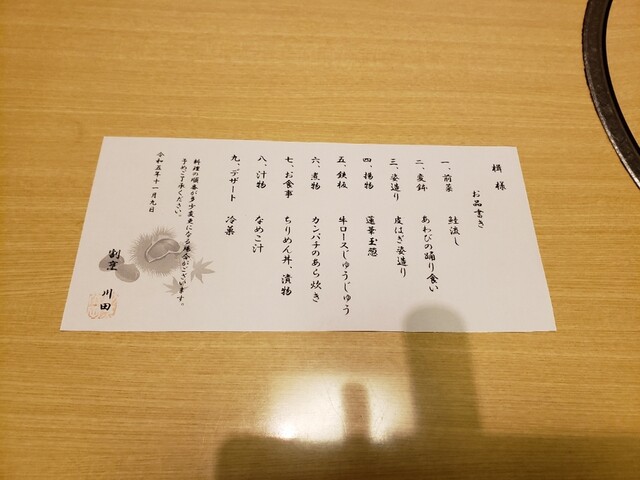 様
お品書き
一、前菜 鮭流し
二、変鉢 あわびの踊り食い
三、姿造り 皮はぎ姿造り
四、揚物 蓮華玉葱
五、鉄板 牛ロースじゅうじゅう
六、煮物 カンパチのあら炊き
七、お食事 ちりめん丼、漬物
八、汁物 なめこ汁
九、デザート 冷菓
料理の順番が多少変更になる場合がございます。
予めご了承ください。
令和五年十一月九日
割烹 川田